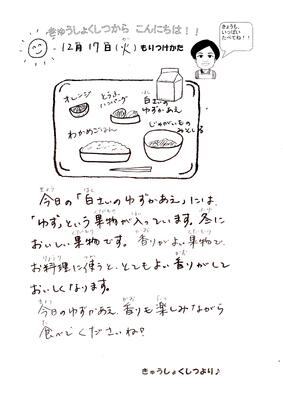 きゅうしょくしつから こんにちは！！
きょうも、
いっぱい
たべてね！！
12月17日(火) もりつけかた
オレンジ
とうふ
ハンバーグ
白さいの
ゆずかあえ
わかめごはん
じゃがいもの
みそしる
今日の「白さいのゆずかあえ」には、
「ゆず」という果物が入っています。冬に
おいしい果物です。香りがよい果物で、
お料理に使うと、とてもよい香りがして
おいしくなります。
今日のゆずかあえ、香りも楽しみながら
食べてくださいね？
きゅうしょくしつより♪